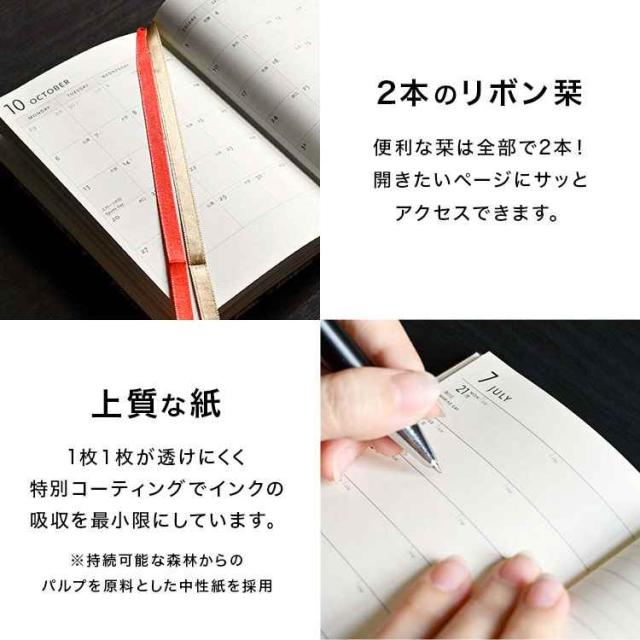 2本のリボン栞
便利な栞は全部で2本!
開きたいページにサッと
アクセスできます。
10 OCTOBER
MONDAY TUESDAY WEDNESDAY
6
13
20
27
上質な紙
1枚1枚が透けにくく
特別コーティングでインクの
吸収を最小限にしています。
※持続可能な森林からの
パルプを原料とした中性紙を採用
7 JULY
21